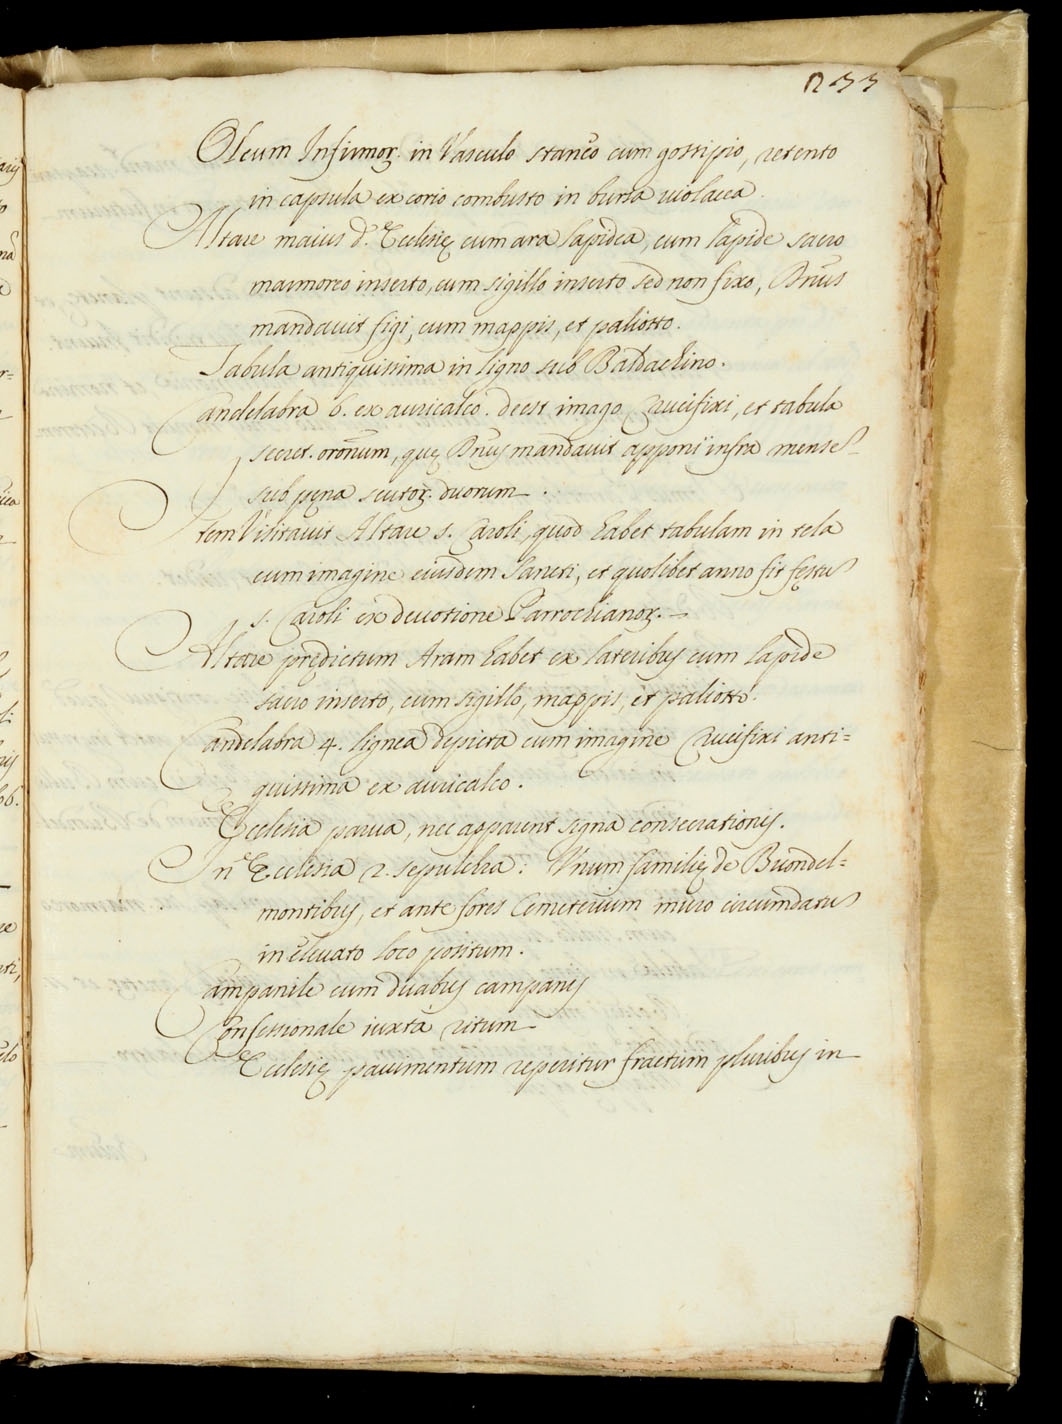 233
Oleum Infirmor. in Vasculo staneo cum gossipio, retento
in capsula ex corio combusto in bursa violacea.
Altare maius d.ę Ecclesię cum ara lapidea, cum lapide sacro
marmoreo inserto, cum sigillo inserto sed non fixo, Dnus
mandauit figi, cum mappis, et paliotto.
Tabula antiquissima in ligno sub Baldachino.
Candelabra 6. ex auricalco. deest imago Crucifixi, et tabula
secret. oronum, quę Dnus mandauit apponi infra mense
sub pęna scutor. duorum.
Item Visitauit Altare S. Caroli, quod habet tabulam in tela
cum imagine eiusdem Sancti, et quolibet anno fit festu
S. Caroli ex deuotione Parrochianor.
Altare prędictum Aram habet ex lateribus cum lapide
sacro inserto, cum sigillo, mappis, et paliotto.
Candelabra 4. lignea depicta cum imagine Crucifixi anti=
quissima ex auricalco.
Ecclesia parua, nec apparent signa consecrationis.
In Ecclesia 2. sepulchra: Vnum familię de Buondel=
montibus, et ante fores Cemeterium muro circumdatu
in eleuato loco positum.
Campanile cum duabus campanis
Confessionale iuxta ritum
Ecclesię pauimentum reperitur fractum pluribus in